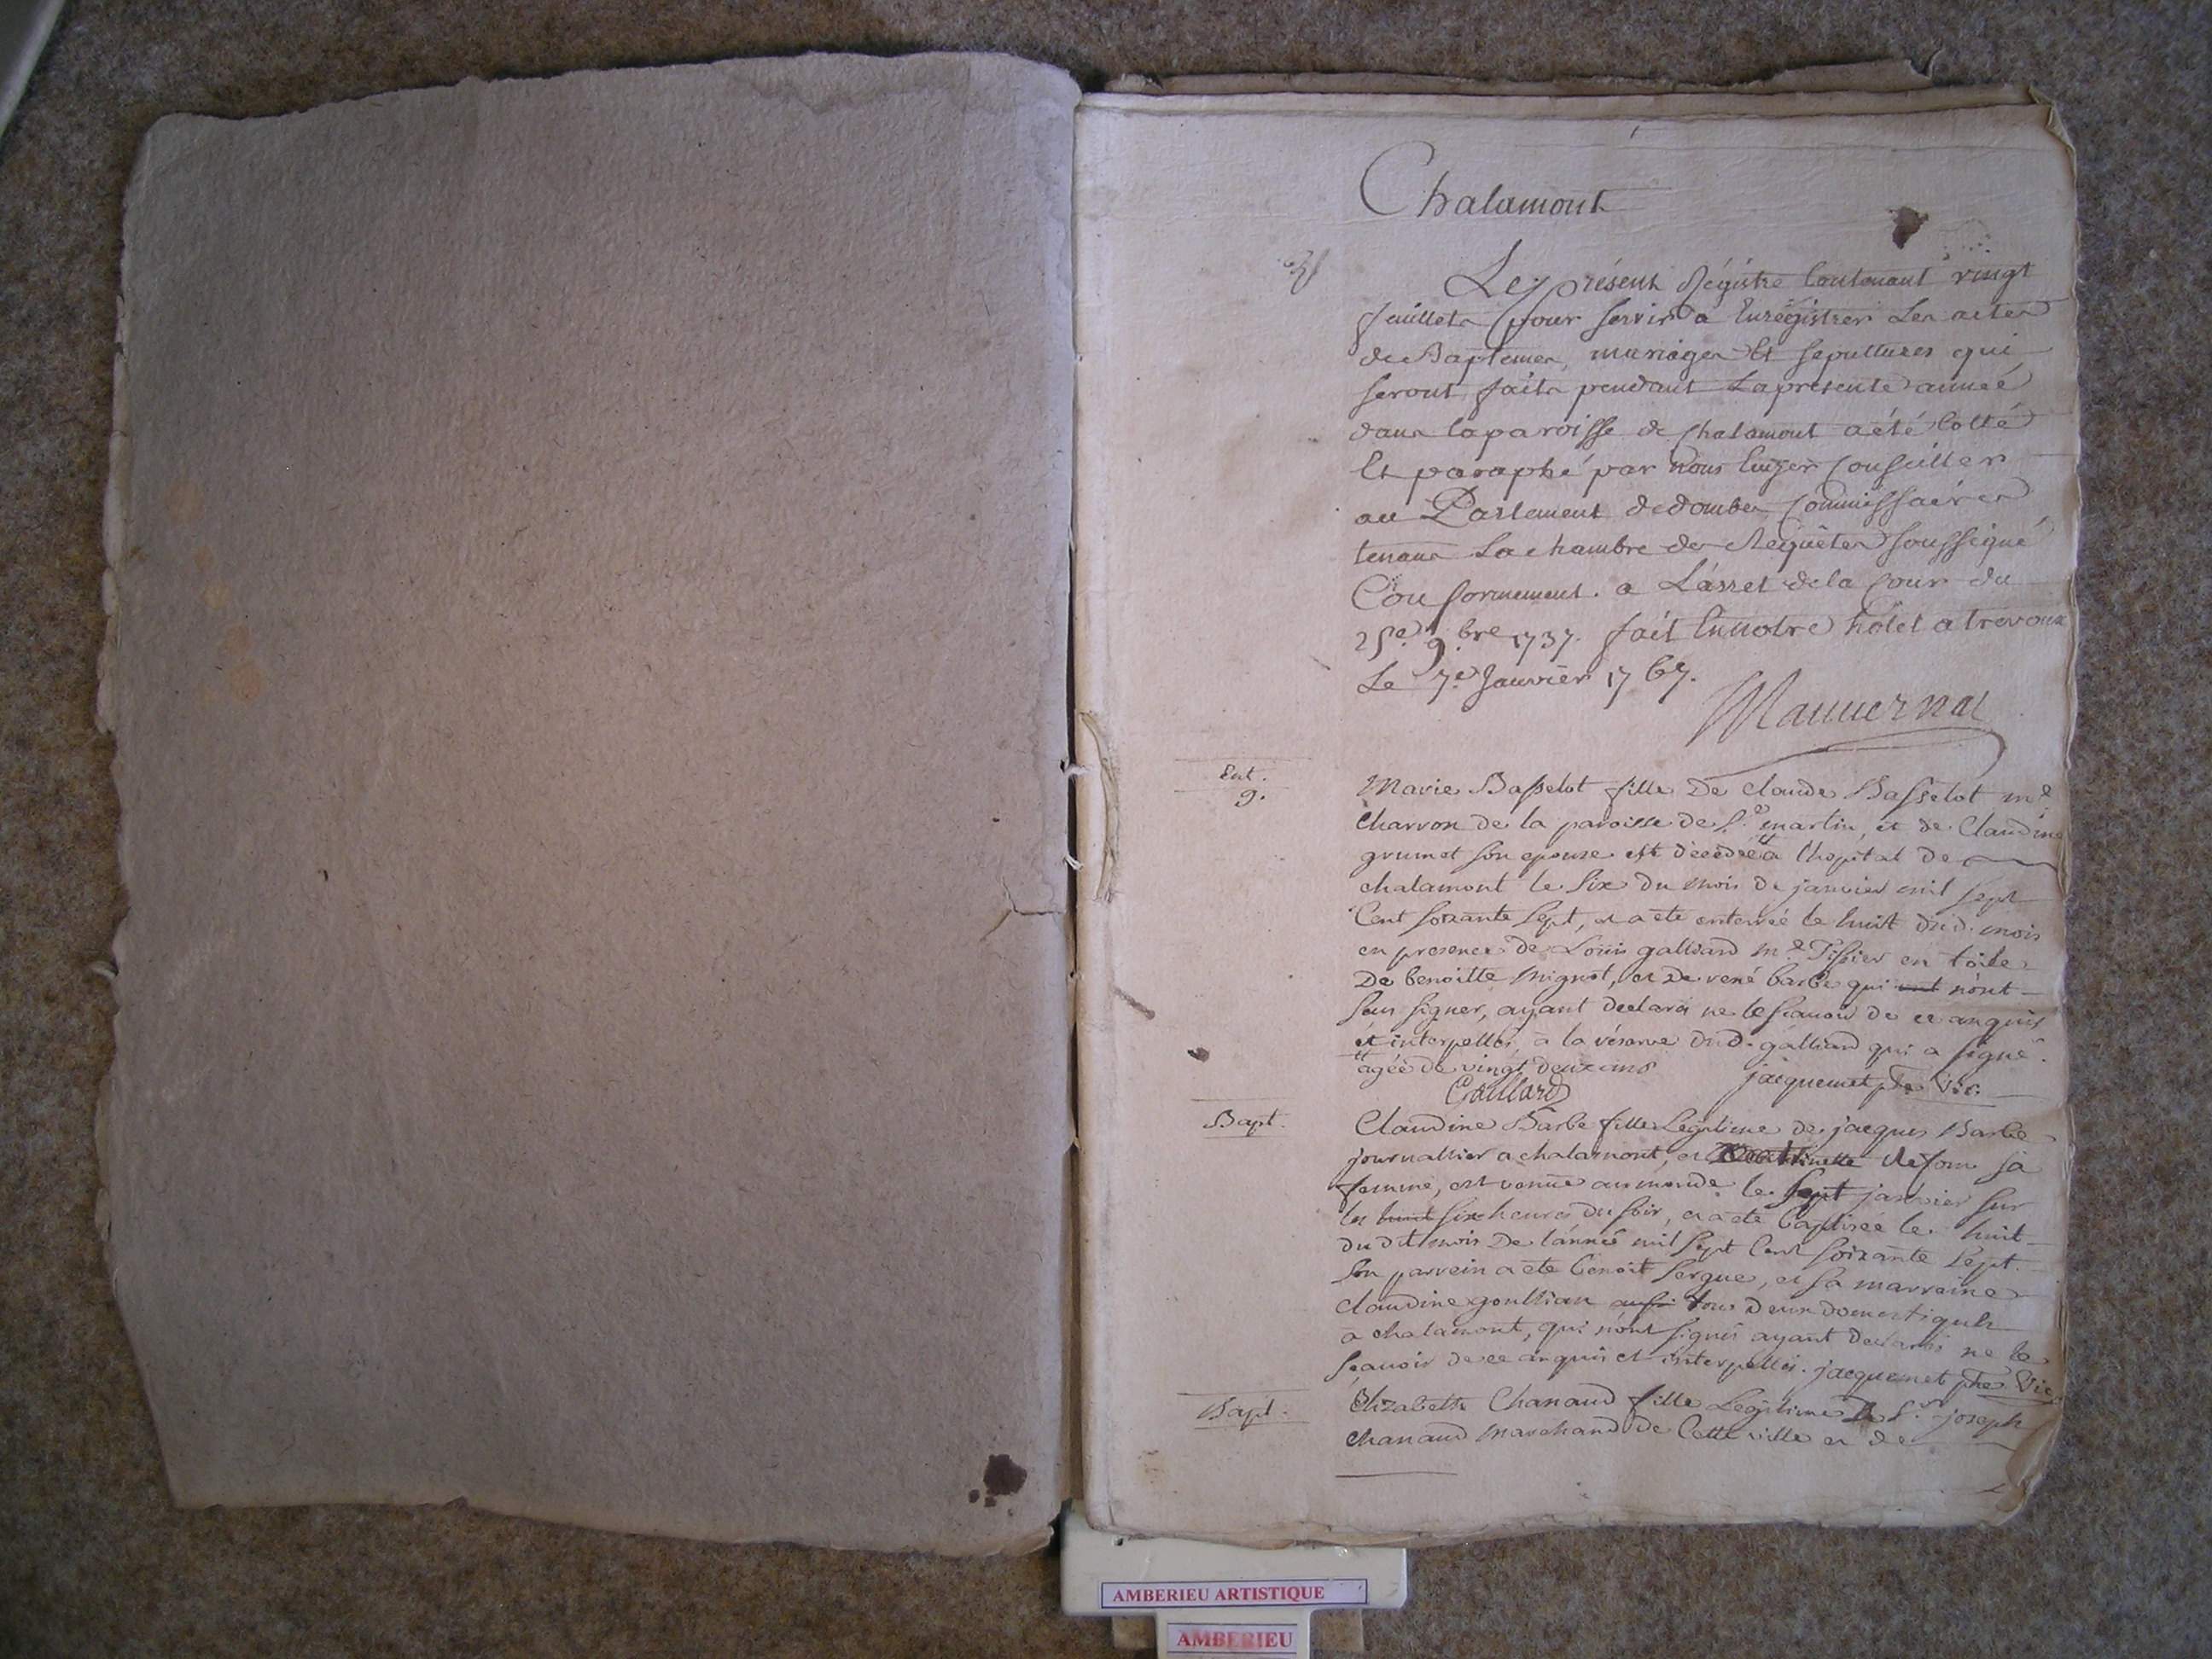 Chalamont
Le présent Régistre Contenant vingt
feuillets pour servir a Enrégistrer Les actes
de Baptemes, mariages Et sepultures qui
seront faits pendant La présente année
dans la paroisse de Chalamont a été Cotté
Et paraphé par Nous Conseiller
au Parlement de dombes Commissaires
tenans La chambre des Requêtes soussigné
Conformement a L'arret de la Cour du
25e. 9.bre 1737. fait En notre hôtel a trevoux
Le 7e. Janvier 1767.
Ent.
9.
Marie Basselot fille De claude Basselot me
charron de la paroisse de St. martin, et de Claudine
grumet son epouse est décédée a l'hopital de
chalamont le six du mois de janvier mil sept
Cent soixante sept, et a ete enterrée le huit dud. mois
en presence de Loüis galliard me. Tissier en toile
De benoitte mignot, et De rené barbe qui ont n'ont
sçu signer, ayant declaré ne le sçavoir de ce enquis
et interpellés, à la réserve dud. galliard qui a signé.
agée de vingt deux ans jacquemet ptre Vic.
Gaillard
Bapt.
Claudine Barbe fille Legitime de jacques Barbe
journallier a chalamont, et sa
femme, est venüe au monde le sept janvier sur
les huit six heures du soir, et a été baptisée le huit
du dit mois De l'année mil sept Cent soixante sept.
son parrein a ete benoit sergue, et sa marraine
claudine goullian aussi tous deux domestiques
a chalamont, qui n'ont signés ayant declarés ne le
sçavoir de ce enquis et interpellés. jacquemet ptre Vic
Bapt.
Elizabeth Chanaud fille Legitime De Sr. joseph
chanaud marchand De Cette ville et de
AMBERIEU ARTISTIQUE
AMBERIEU